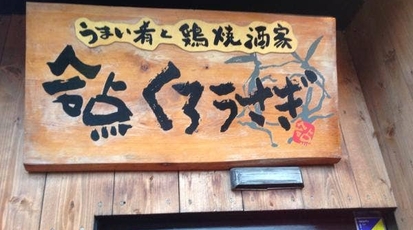 うまい肴と鶏焼酒家
合点くろうさぎ